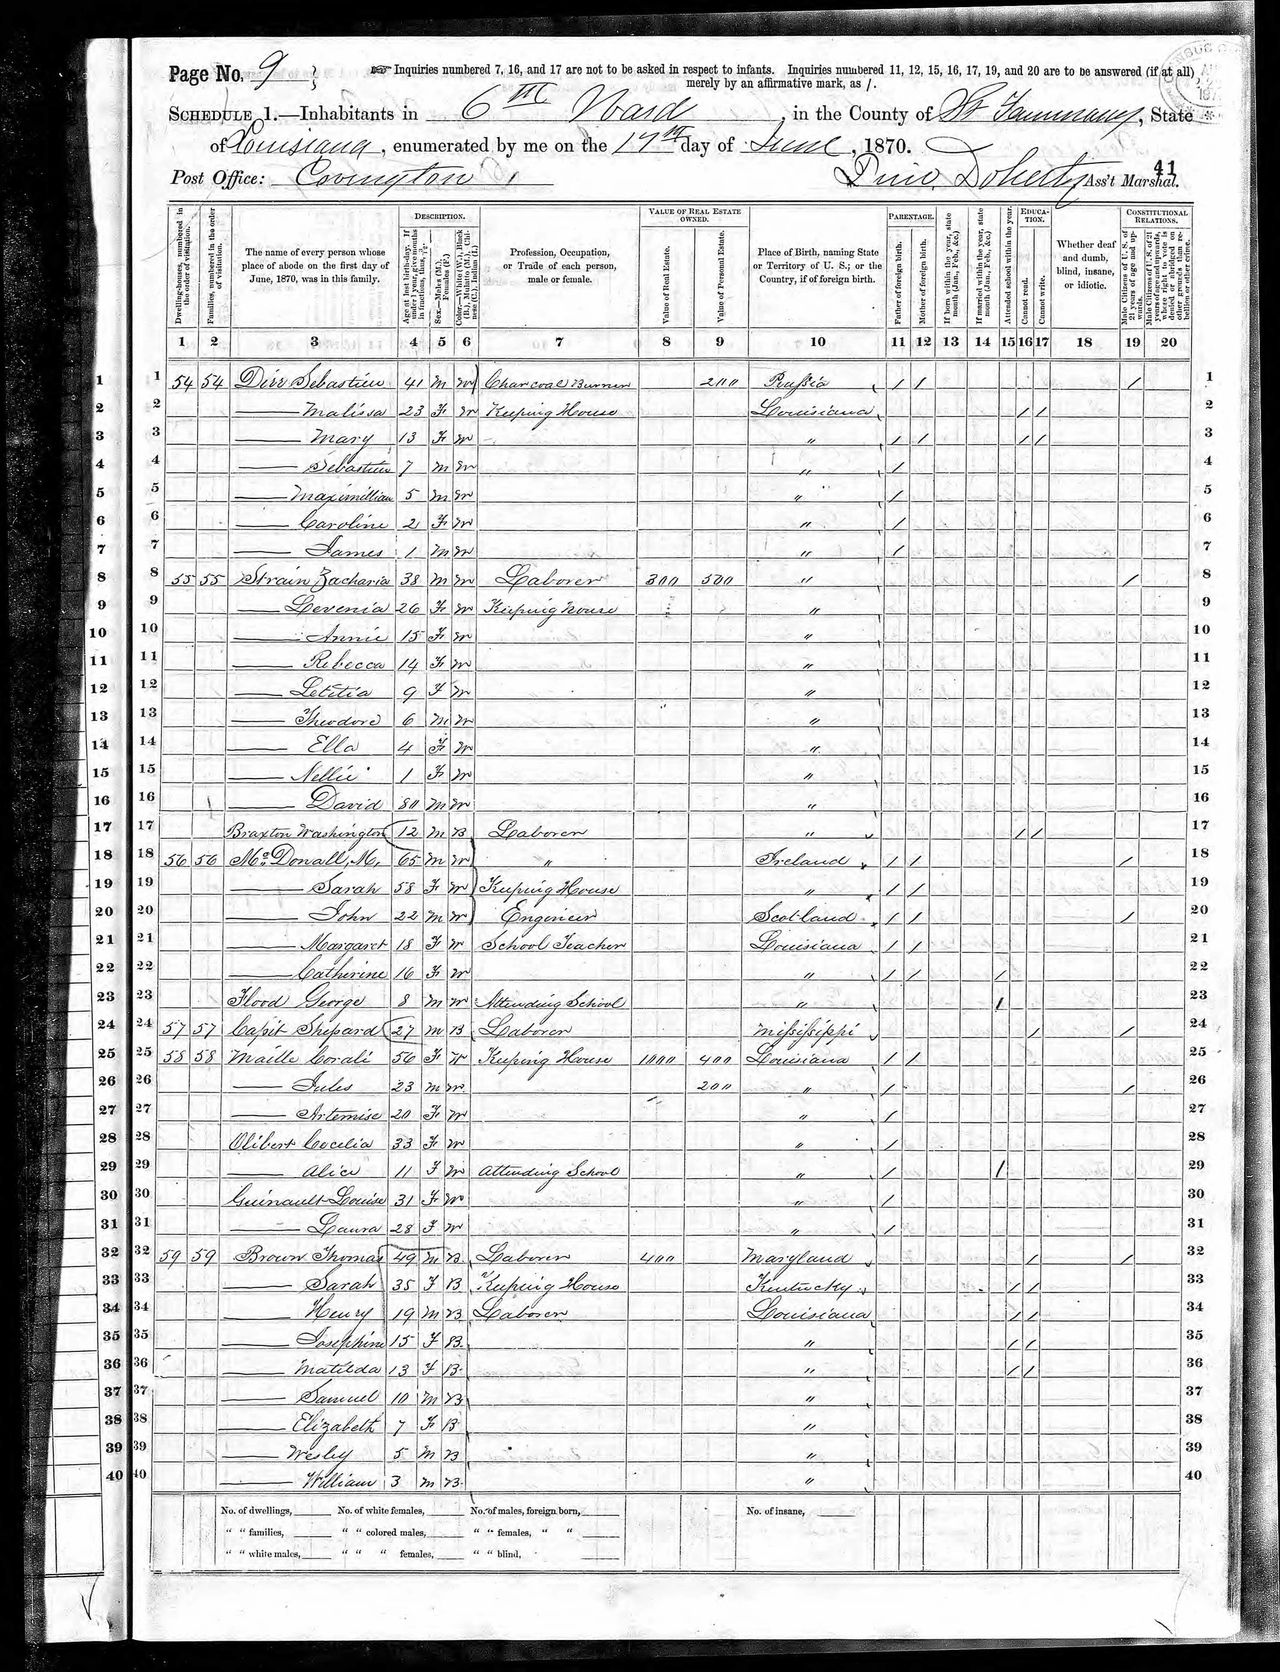 Page No. 9
☞ Inquiries numbered 7, 16, and 17 are not to be asked in respect to infants. Inquiries numbered 11, 12, 15, 16, 17, 19, and 20 are to be answered (if at all)
merely by an affirmative mark, as /.
SCHEDULE 1.—Inhabitants in 6th Ward, in the County of St Tammany, State
of Louisiana, enumerated by me on the 17th day of June, 1870.
Post Office: Covington
Doherty Ass't Marshal.
41
DESCRIPTION.
VALUE OF REAL ESTATE OWNED.
PARENTAGE.
EDUCATION.
CONSTITUTIONAL RELATIONS.
Dwelling-houses, numbered in the order of visitation.
Families, numbered in the order of visitation.
The name of every person whose place of abode on the first day of June, 1870, was in this family.
Age at last birth-day. If under 1 year, give months in fractions, thus, 3/12.
Sex.—Males (M.), Females (F.)
Color.—White (W.), Black (B.), Mulatto (M.), Chinese (C.), Indian (I.)
Profession, Occupation, or Trade of each person, male or female.
Value of Real Estate.
Value of Personal Estate.
Place of Birth, naming State or Territory of U. S.; or the Country, if of foreign birth.
Father of foreign birth.
Mother of foreign birth.
If born within the year, state month (Jan., Feb., &c.)
If married within the year, state month (Jan., Feb., &c.)
Attended school within the year.
Cannot read.
Cannot write.
Whether deaf and dumb, blind, insane, or idiotic.
Male Citizens of U. S. of 21 years of age and upwards.
Male Citizens of U. S. of 21 years of age and upwards, whose right to vote is denied or abridged on other grounds than rebellion or other crime.
1 2 3 4 5 6 7 8 9 10 11 12 13 14 15 16 17 18 19 20
1 1 54 54 Dirr Sebastien 41 M W Charcoal Burner 200 Prussia / / / 1
2 2 — Malissa 23 F W Keeping House Louisiana / / 2
3 3 — Mary 13 F W " / / / / 3
4 4 — Sebastien 7 M W " / 4
5 5 — Maximillian 5 M W " / 5
6 6 — Caroline 2 F W " / 6
7 7 — James 1 M W " / 7
8 8 55 55 Strain Zacharia 38 M W Laborer 300 500 " / 8
9 9 — Levenia 26 F W Keeping house " 9
10 10 — Annie 15 F W " 10
11 11 — Rebecca 14 F W " 11
12 12 — Letitia 9 F W " 12
13 13 — Theodore 6 M W " 13
14 14 — Ella 4 F W " 14
15 15 — Nellie 1 F W " 15
16 16 — David 80 M W " 16
17 17 Braxton Washington 12 M B Laborer " / / 17
18 18 56 56 McDonall, M, 65 M W " Ireland / / / 18
19 19 — Sarah 58 F W Keeping House " / / 19
20 20 — John 22 M W Engineer Scotland / / / 20
21 21 — Margaret 18 F W School Teacher Louisiana / / 21
22 22 — Catherine 16 F W " / / / 22
23 23 Flood George 8 M W Attending School " / 23
24 24 57 57 Capit Shepard 27 M B Laborer Mississippi / / 24
25 25 58 58 Maille Corali 56 F W Keeping House 1000 400 Louisiana / / 25
26 26 — Jules 23 M W 200 " / / 26
27 27 — Artemise 20 F W " / 27
28 28 Olibert Cecilia 33 F W " / 28
29 29 — Alice 11 F W Attending School " / / 29
30 30 Guinault Louise 31 F W " / 30
31 31 — Laura 28 F W " / 31
32 32 59 59 Brown Thomas 49 M B Laborer 400 Maryland / / 32
33 33 — Sarah 35 F B Keeping House Kentucky / / 33
34 34 — Henry 19 M B Laborer Louisiana / / 34
35 35 — Josephine 15 F B " / / 35
36 36 — Matilda 13 F B " / / 36
37 37 — Samuel 10 M B " 37
38 38 — Elizabeth 7 F B " 38
39 39 — Wesley 5 M B " 39
40 40 — William 3 M B " 40
No. of dwellings, No. of white females, No. of males, foreign born, No. of insane,
" " families, " " colored males, " " females, " "
" " white males, " " " females, " " blind,